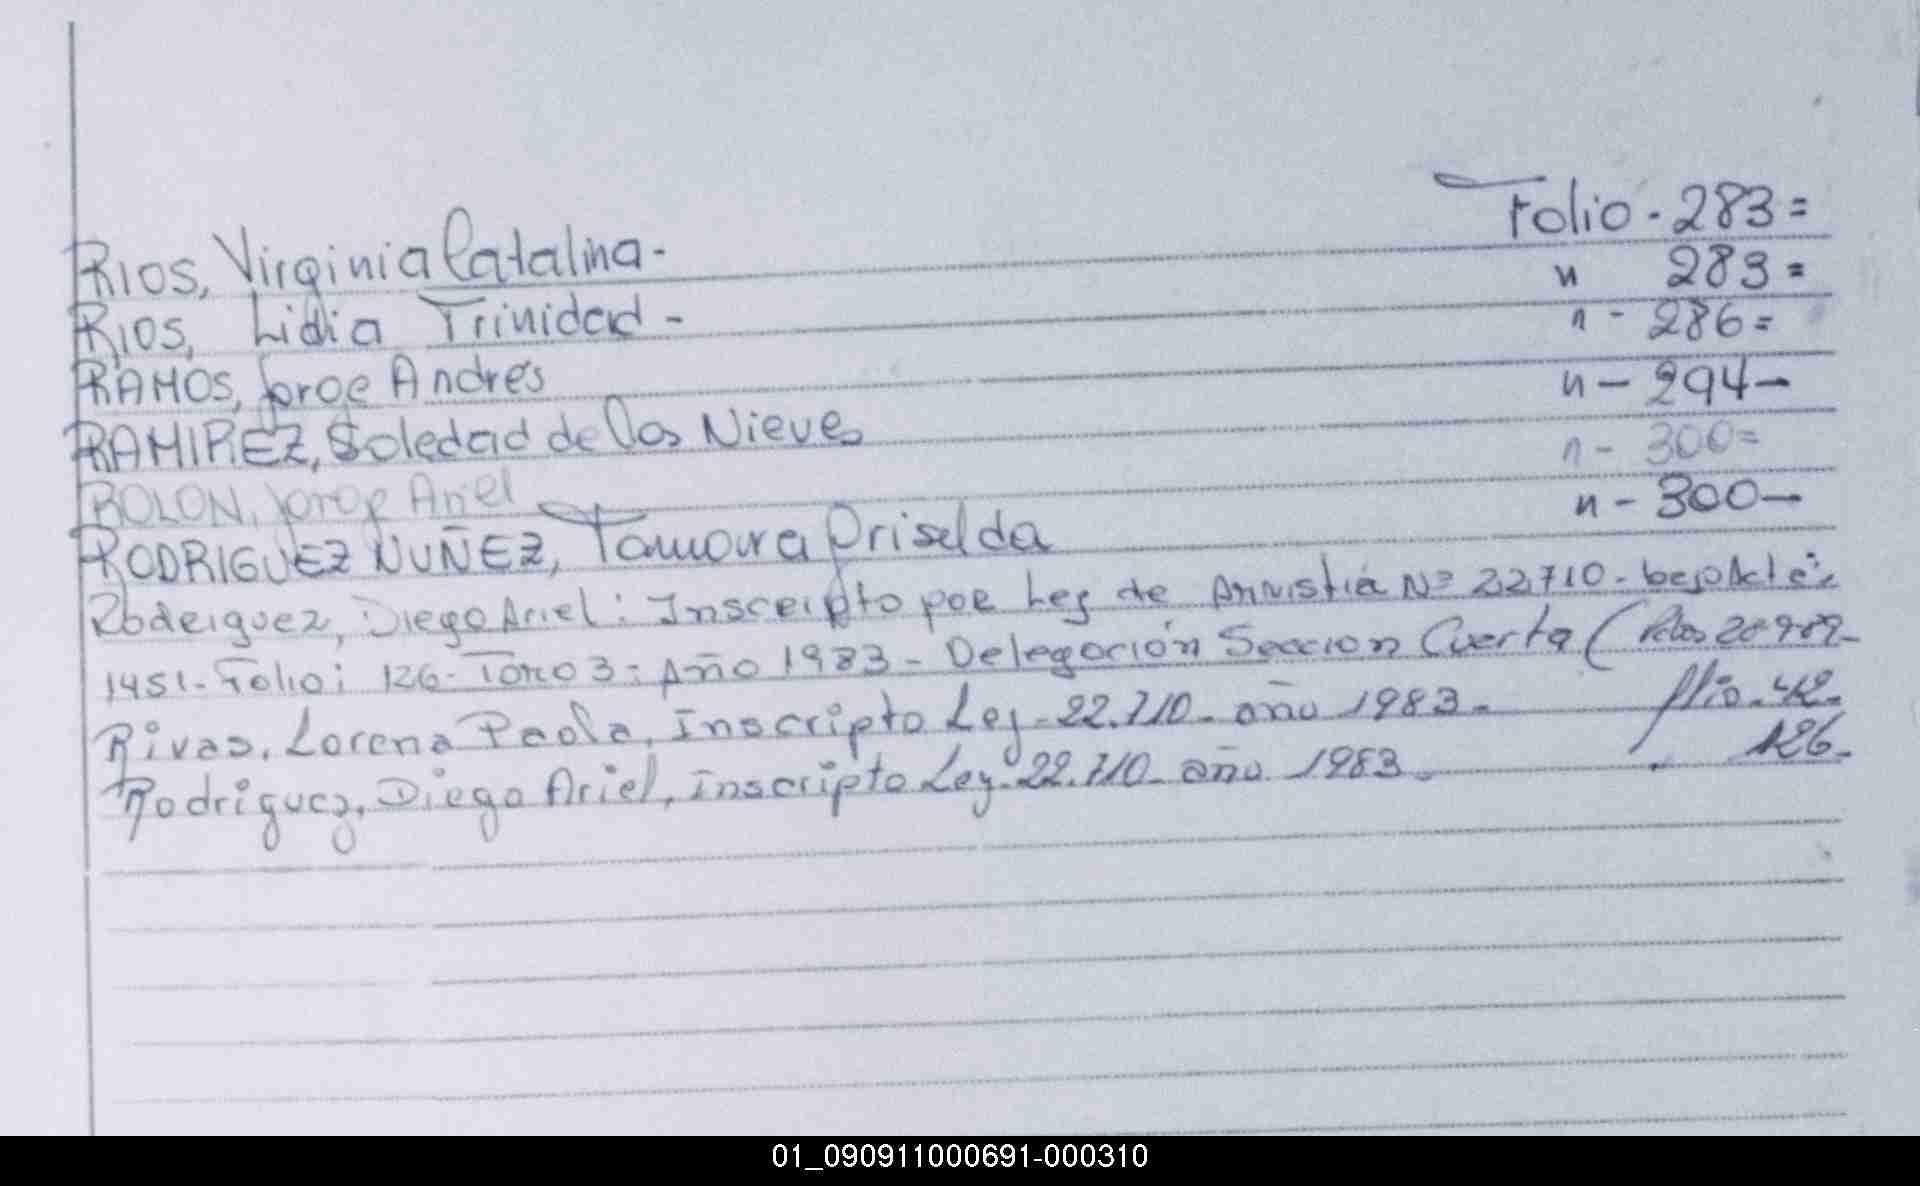 RIOS, Virginia Catalina - Folio - 283 =
RIOS, Lidia Trinidad - " 283 =
RAMOS, Jorge Andrés " - 286 =
RAMIREZ, Soledad de las Nieves " - 294 -
ROLON, Jorge Ariel " - 300 =
RODRIGUEZ NUÑEZ, Tamara Griselda " - 300 -
Rodriguez, Diego Ariel: Inscripto por Ley de Amnistia Nº 22710 - bajo Acta:
1451 - Folio: 126 - Tomo 3: Año 1983 - Delegación Seccion Cuarta (
Rivas, Lorena Paola, Inscripto Ley - 22.710 - año 1983 - flio - 42 -
Rodriguez, Diego Ariel, Inscripto Ley - 22.710 - año 1983 - " 126 -
01_090911000691-000310